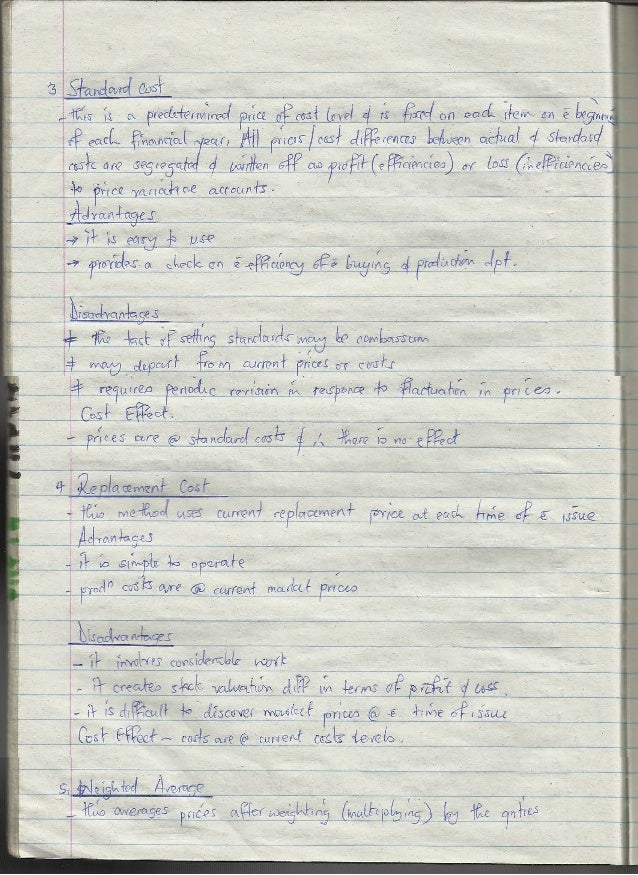 3 Standard Cost
- this is a predetermined price of cost level & is fixed on each item on ē beginnin
of each financial year, All prices/cost differences between actual & standard
costs are segregated & written off as profit (efficiencies) or loss (inefficiencies)
to price variative accounts.
Advantages
→ it is easy to use
→ provides a check on ē efficiency of ē buying & production dpt.
Disadvantages
≠ the task of setting standards may be combassum
≠ may depart from current prices or costs
≠ requires periodic revision in response to flactuation in prices.
Cost Effect.
- prices are @ standard costs & ∴ there is no effect
4 Replacement Cost
- this method uses current replacement price at each time of ē issue
Advantages
- it is simple to operate
- prodⁿ costs are @ current market prices
Disadvantages
- it involves considerable work
- it creates stock valuation diff in terms of profit & loss.
- it is difficult to discover market prices @ ē time of issue
Cost Effect - costs are @ current costs levels.
5. Weighted Average
- this averages prices after weighting (multiplying) by the qnties